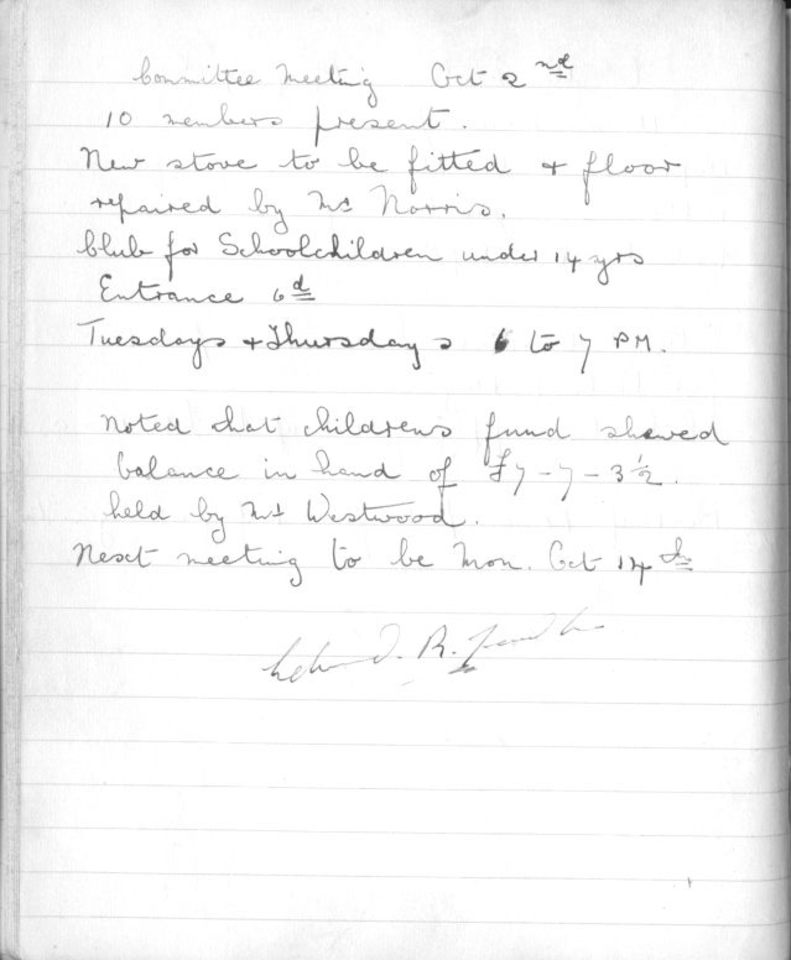 Committee Meeting Oct 2nd
10 members present.
New stove to be fitted & floor
repaired by Mr Norris.
Club for Schoolchildren under 14 yrs
Entrance 6d
Tuesdays & Thursdays 6 to 7 PM.
Noted that childrens fund showed
balance in hand of £7-7-3½.
held by Mr Westwood.
Next meeting to be Mon. Oct 14th
R.